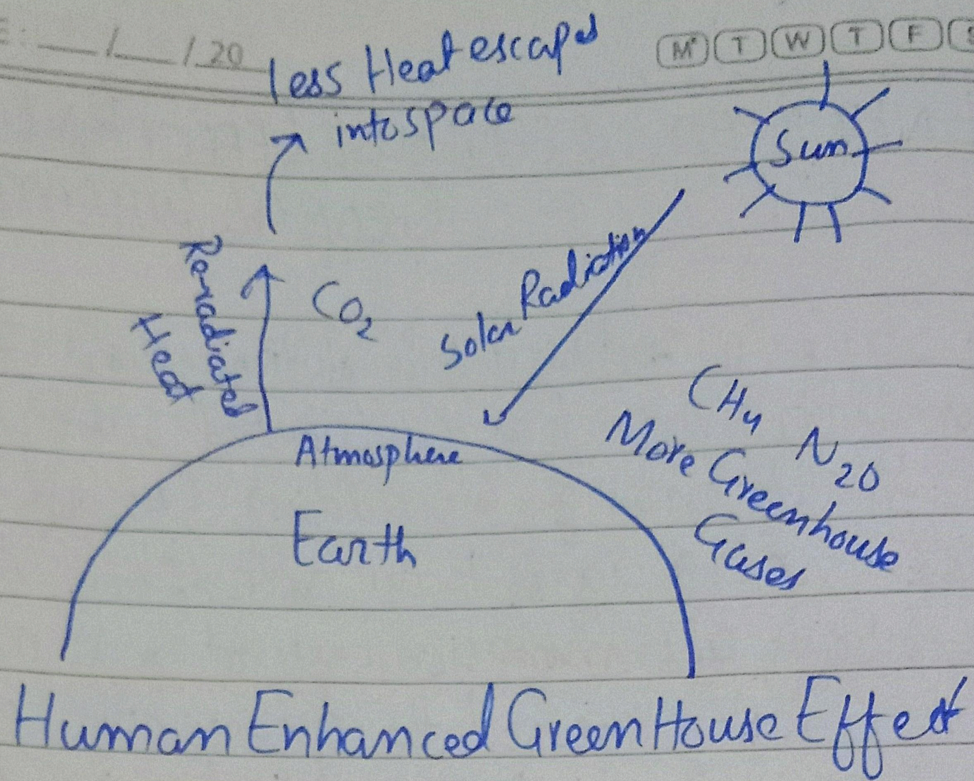 : __/__/20
M T W T F S
less Heat escapes
into space
Sun
Re-radiated
Heat
CO2
Solar Radiation
CH4
N2O
More Greenhouse
Gases
Atmosphere
Earth
Human Enhanced Green House Effect